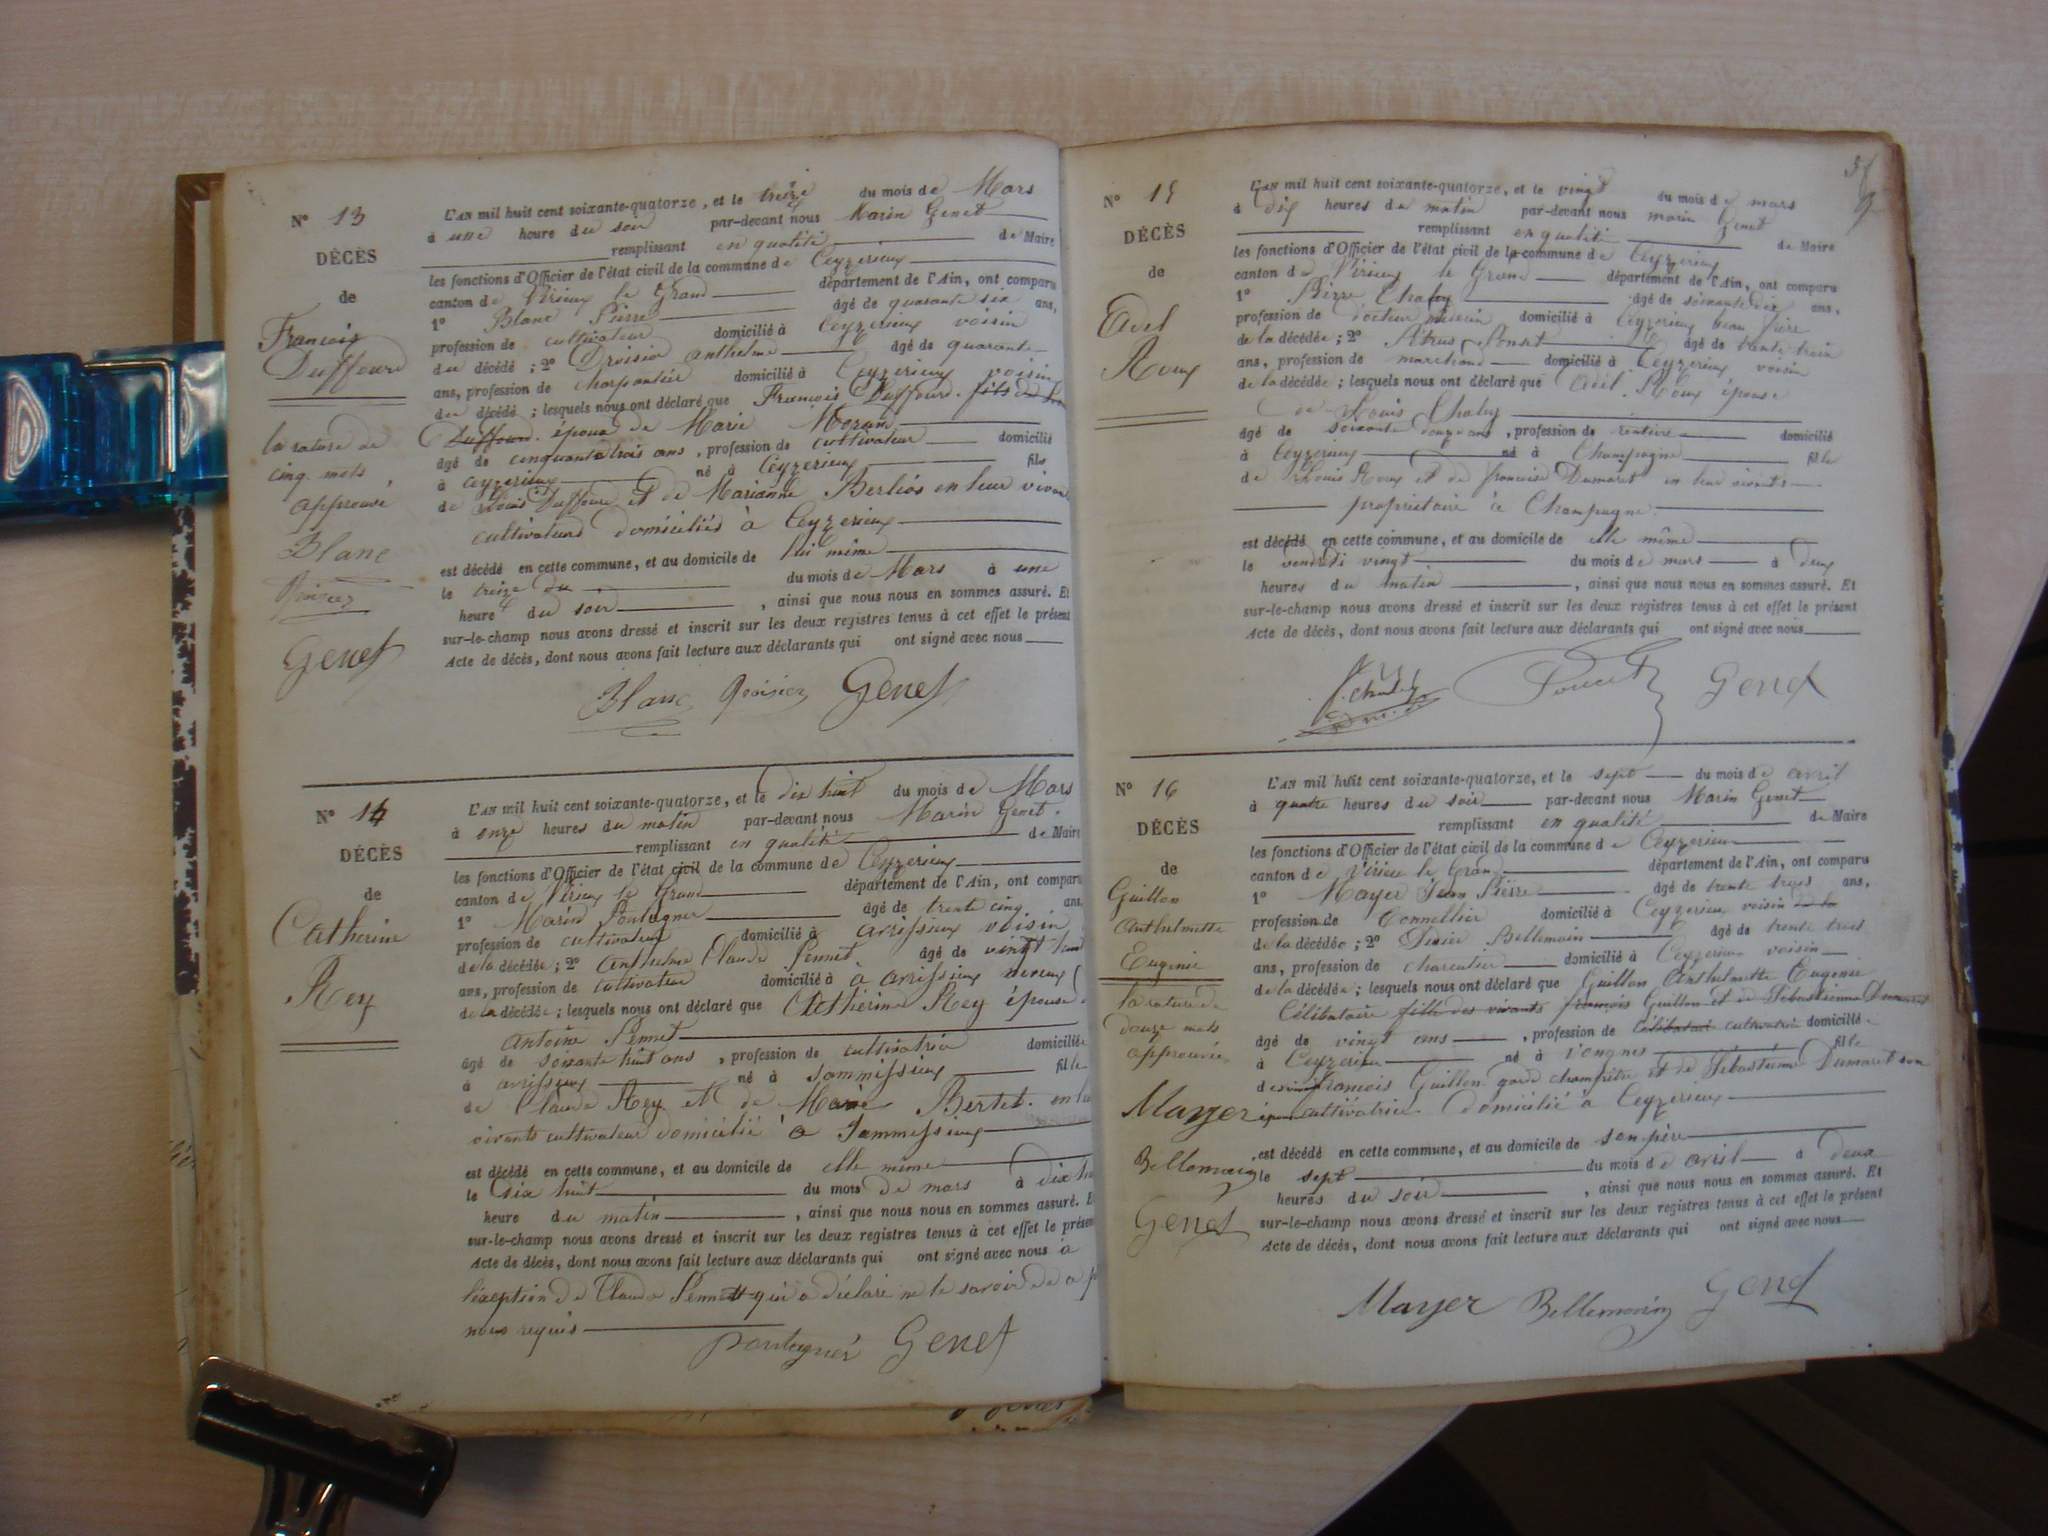 N° 13
DÉCÈS
de
François
Duffourd
la rature de
cinq mots
approuvé
Blanc
Genet
L'AN mil huit cent soixante-quatorze, et le treize du mois de Mars
à une heure du soir par-devant nous Marin Genet
remplissant en qualité de Maire
les fonctions d'Officier de l'état civil de la commune de Ceyzerieux
canton de Virieux le Grand département de l'Ain, ont comparu
1° Blanc Pierre âgé de quarante six ans,
profession de cultivateur domicilié à Ceyzerieux voisin
du décédé ; 2° anthelme âgé de quarante
ans, profession de charpentier domicilié à Ceyzerieux voisin
du décédé ; lesquels nous ont déclaré que François Duffourd fils de
Duffourd époux de Marie Morin
âgé de cinquante trois ans, profession de cultivateur domicilié
à Ceyzerieux né à Ceyzerieux fils
de Louis Duffourd et de Marianne Berlios en leur vivant
cultivateurs domiciliés à Ceyzerieux
est décédé en cette commune, et au domicile de lui même
le treize du du mois de Mars à une
heure du soir, ainsi que nous nous en sommes assuré. Et
sur-le-champ nous avons dressé et inscrit sur les deux registres tenus à cet effet le présent
Acte de décès, dont nous avons fait lecture aux déclarants qui ont signé avec nous
Blanc Genet
N° 14
DÉCÈS
de
Catherine
Rey
L'AN mil huit cent soixante-quatorze, et le dix huit du mois de Mars
à onze heures du matin par-devant nous Marin Genet.
remplissant en qualité de Maire
les fonctions d'Officier de l'état civil de la commune de Ceyzerieux
canton de Virieux le Grand département de l'Ain, ont comparu
1° Marin Pontagner âgé de trente cinq ans
profession de cultivateur domicilié à avrissieux voisin
de la décédée ; 2° anthelme Claude Pennet. âgé de vingt
ans, profession de cultivateur domicilié à a avrissieux neveux
de la décédée ; lesquels nous ont déclaré que Cathérine Rey épouse
Antoine Pennet
âgé de soixante huit ans, profession de cultivatrice domiciliée
à avrissieux né à Sammissieux fille
de Claude Rey et de Marie Bertet. en
vivants cultivateur domicilié à Sammissieux
est décédé en cette commune, et au domicile de elle même
le dix huit du mois de mars à dix
heure du matin, ainsi que nous nous en sommes assuré. E
sur-le-champ nous avons dressé et inscrit sur les deux registres tenus à cet effet le présen
Acte de décès, dont nous avons fait lecture aux déclarants qui ont signé avec nous à
l'exeption de Claude Pennet qui a déclaré ne le savoir de a p
nous requis
pontagnér Genet
N° 15
DÉCÈS
de
Adel
Roux
L'AN mil huit cent soixante-quatorze, et le vingt du mois de mars
à dix heures du matin par-devant nous marin Genet
remplissant en qualité de Maire
les fonctions d'Officier de l'état civil de la commune de Ceyzerieux
canton de Virieux le Grand département de l'Ain, ont comparu
1° Pierre Chaley âgé de soixante dix ans,
profession de docteur médecin domicilié à Ceyzerieux beau frère
de la décédée ; 2° Ponset âgé de trente trois
ans, profession de marchand domicilié à Ceyzerieux voisin
de la décédée ; lesquels nous ont déclaré que Adel Roux épouse
de Louis Chaley
âgé de soixante douze ans, profession de rentière domicilié
à Ceyzerieux né à Champagne fille
de Louis Roux et de françoise Dumaret en leur vivants
propriétaire à Champagne
est décédé en cette commune, et au domicile de elle même
le vendredi vingt du mois de mars à deux
heures du matin, ainsi que nous nous en sommes assuré. Et
sur-le-champ nous avons dressé et inscrit sur les deux registres tenus à cet effet le présent
Acte de décès, dont nous avons fait lecture aux déclarants qui ont signé avec nous
Genet
N° 16
DÉCÈS
de
Guillon
anthelmette
Eugenie
la rature de
douze mots
approuvée
Mayer
Bellemain
Genet
L'AN mil huit cent soixante-quatorze, et le sept du mois de avril
à quatre heures du soir par-devant nous Marin Genet
remplissant en qualité de Maire
les fonctions d'Officier de l'état civil de la commune de Ceyzerieux
canton de Virieu le Grand département de l'Ain, ont comparu
1° Mayer Jean Pierre âgé de trente trois ans,
profession de Tonnellier domicilié à Ceyzerieu voisin de la
de la décédée ; 2° Didier Bellemain âgé de trente trois
ans, profession de charentier domicilié à Ceyzerieux voisin
de la décédée ; lesquels nous ont déclaré que Guillon Anthelmette Eugenie
Célibataire fille des vivants françois Guillon et de Sébastienne Dumaret
âgé de vingt ans, profession de célibataire cultivatrice domicilié
à Ceyzerieu né à Vongnes fille
de françois Guillon garde champêtre et de Sébastienne Dumaret son
épouse cultivatrice domicilié à Ceyzerieux
est décédé en cette commune, et au domicile de son père
le sept du mois de avril à deux
heures du soir, ainsi que nous nous en sommes assuré. Et
sur-le-champ nous avons dressé et inscrit sur les deux registres tenus à cet effet le présent
Acte de décès, dont nous avons fait lecture aux déclarants qui ont signé avec nous
Mayer Bellemain Genet